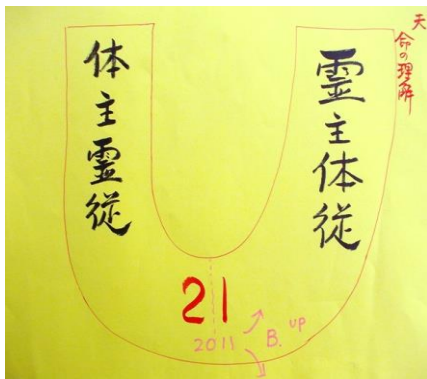 天命の理解
霊主体従
体主霊従
21
2011
B. up